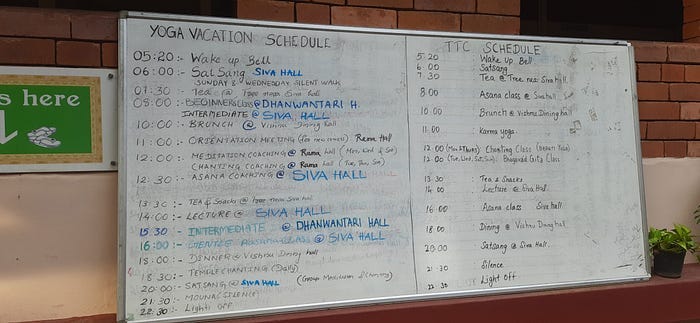 s here
YOGA VACATION SCHEDULE
05:20 :- Wake up Bell
06:00 :- SatSang SIVA HALL
SUNDAY & WEDNESDAY SILENT WALK
07:30 :- Tea @ near Siva hall
08:00 :- BEGINNERS Class @ DHANWANTARI H.
INTERMEDIATE @ SIVA HALL
10:00 :- BRUNCH @ Vishnu Dining hall
11:00 :- ORIENTATION MEETING (for new comers) Rama Hall
12:00 :- MEDITATION COACHING @ Rama hall (Mon, Wed & Sat)
CHANTING COACHING @ Rama hall (Tue, Thu, Sun)
12:30 :- ASANA COACHING @ SIVA HALL
13:30 :- Tea & Snacks @ near Siva hall
14:00 :- LECTURE @ SIVA HALL
15:30 :- INTERMEDIATE @ DHANWANTARI HALL
16:00 :- GENTLE CLASS @ SIVA HALL
18:00 :- DINNER @ Vishnu Dining hall
18:30 :- TEMPLE CHANTING (Daily)
20:00 :- SATSANG @ SIVA HALL (Group Meditation & Chanting)
21:30 :- MOUNA (SILENCE)
22:30 :- Lights Off
TTC SCHEDULE
5:20 Wake up Bell
6:00 Satsang
7:30 Tea @ Tree near Siva hall.
8:00 Asana class @ Siva hall
10:00 Brunch @ Vishnu Dining hall
11:00 Karma yoga
12:00 (Mon & Thurs) Chanting Class
12:00 (Tue, Wed, Sat, Sun) Bhagavad Gita Class
13:30 Tea & Snacks
14:00 Lecture @ Siva Hall
16:00 Asana class Siva hall.
18:00 Dining @ Vishnu Dining hall
20:00 Satsang @ Siva Hall.
21:30 Silence
22:30 Light Off